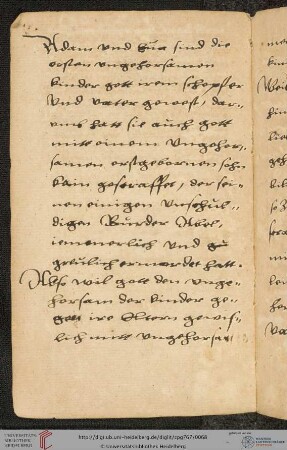 Adam vnd Eua sind die
ersten vngehorsamen
kinder gott irem schopffer
vnd vater gewest, dar-
vmb hatt sie auch gott
mitt einem vngehor-
samen erstgebornen sohn
kain gestraffet, der sei-
nen einigen vnschul-
digen Bruder Abel,
iemerlich vnd
greulich ermordet hatt.
Also wil gott den vnge-
horsam der kinder ge-
gen ire Eltern gewis-
lich mitt vngehorsam
http://digi.ub.uni-heidelberg.de/diglit/cpg767/0068
© Universitätsbibliothek Heidelberg
UNIVERSITÄTS-
BIBLIOTHEK
HEIDELBERG